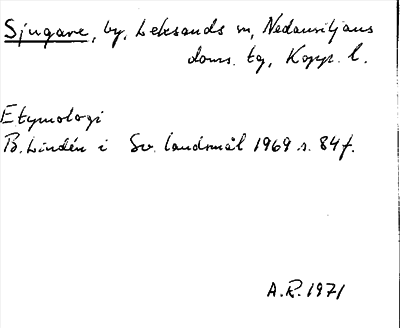 Sjugare, by, Leksands sn, Nedansiljans
doms. tg, Kopp. l.
Etymologi
B. Lindén i Sv. landsmål 1969 s. 84 f.
A.R. 1971